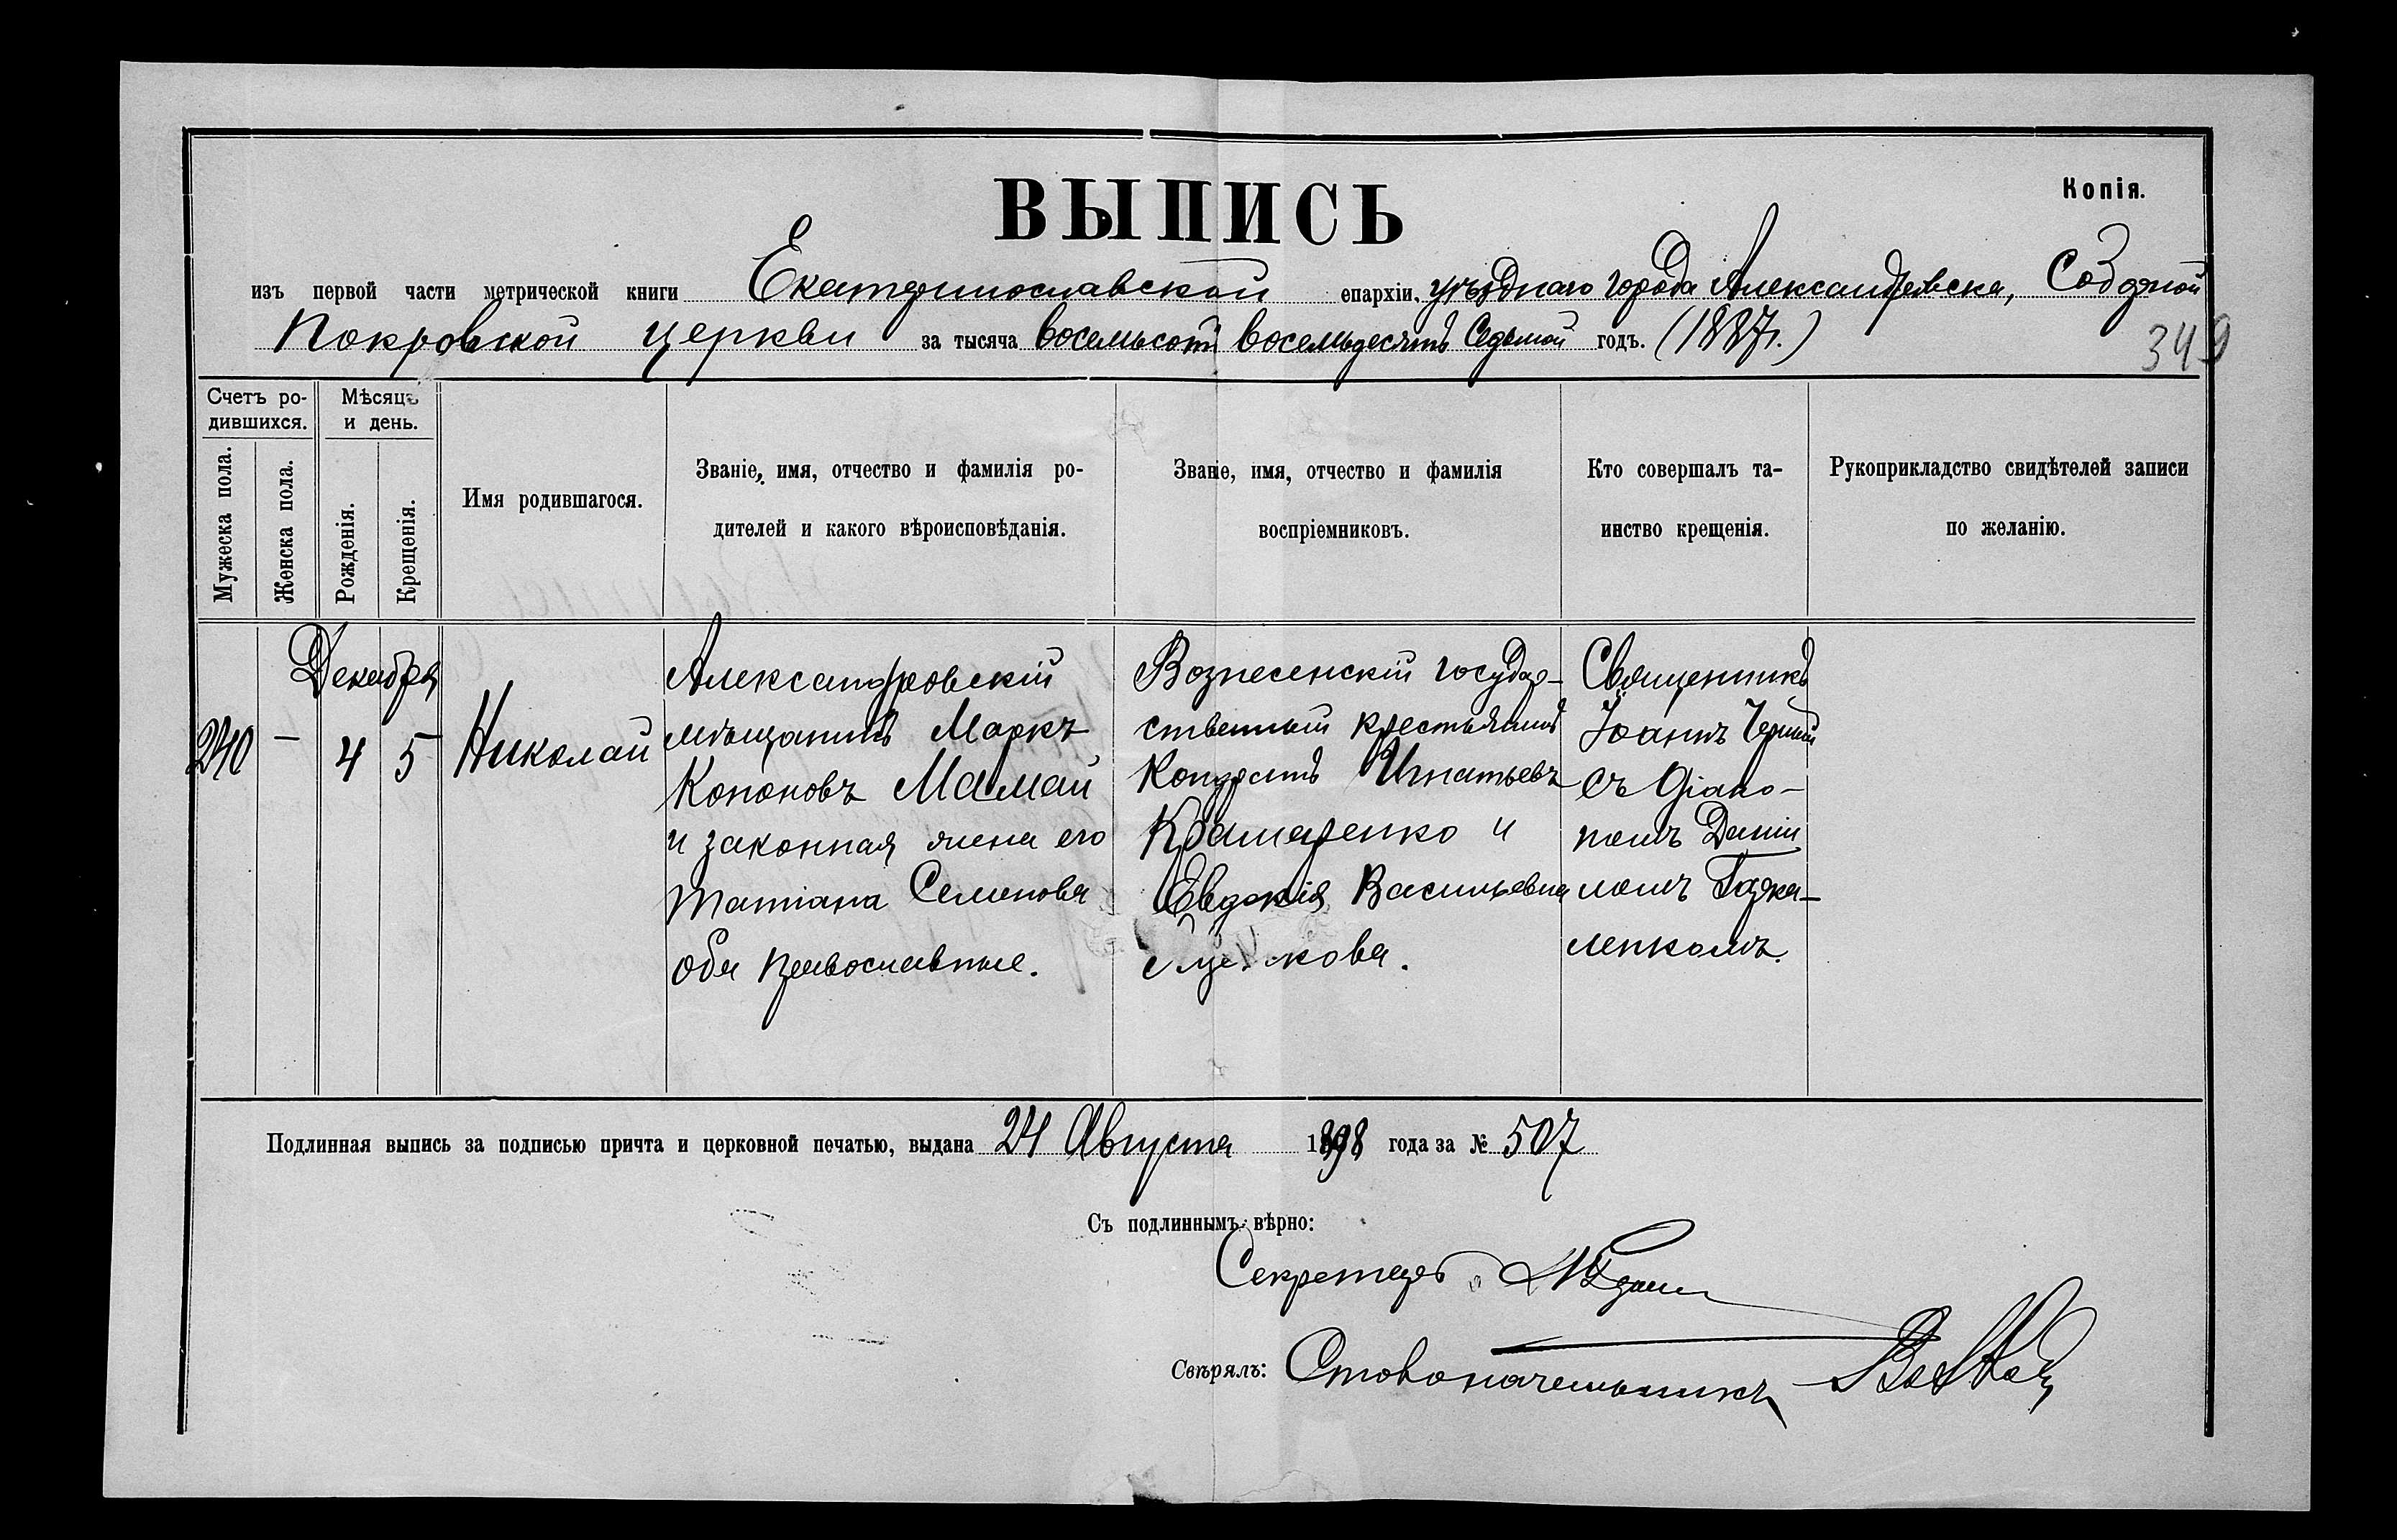 ВЫПИСЬ
Копія.
изъ первой части метрической книги Екатеринославской епархіи, уѣзднаго города Александровска, Соборной
Покровской церкви за тысяча восемьсотъ восемьдесятъ седьмой годъ. (1887г.)
349
Счетъ ро-
дившихся.
Мужеска пола.
Женска пола.
Мѣсяцъ
и день.
Рожденія.
Крещенія.
Имя родившагося.
Званіе, имя, отчество и фамилія ро-
дителей и какого вѣроисповѣданія.
Званіе, имя, отчество и фамилія
воспріемниковъ.
Кто совершалъ та-
инство крещенія.
Рукоприкладство свидѣтелей записи
по желанію.
Декабря
240 — 4 5
Николай
Александровскій
мѣщанинъ Маркъ
Кононовъ Мамай
и законная жена его
Татіана Семенова
оба православные.
Вознесенскій государ-
ственный крестьянинъ
Кондратъ Игнатьевъ
Крамаренко и
Евдокія Васильевна
Священникъ
Іоаннъ Черный
съ діако-
номъ Даніи
ломъ
ленкомъ.
Подлинная выпись за подписью причта и церковной печатью, выдана 24 Августа 1898 года за № 507
Съ подлиннымъ вѣрно:
Секретарь
Свѣрялъ: Столоначальникъ